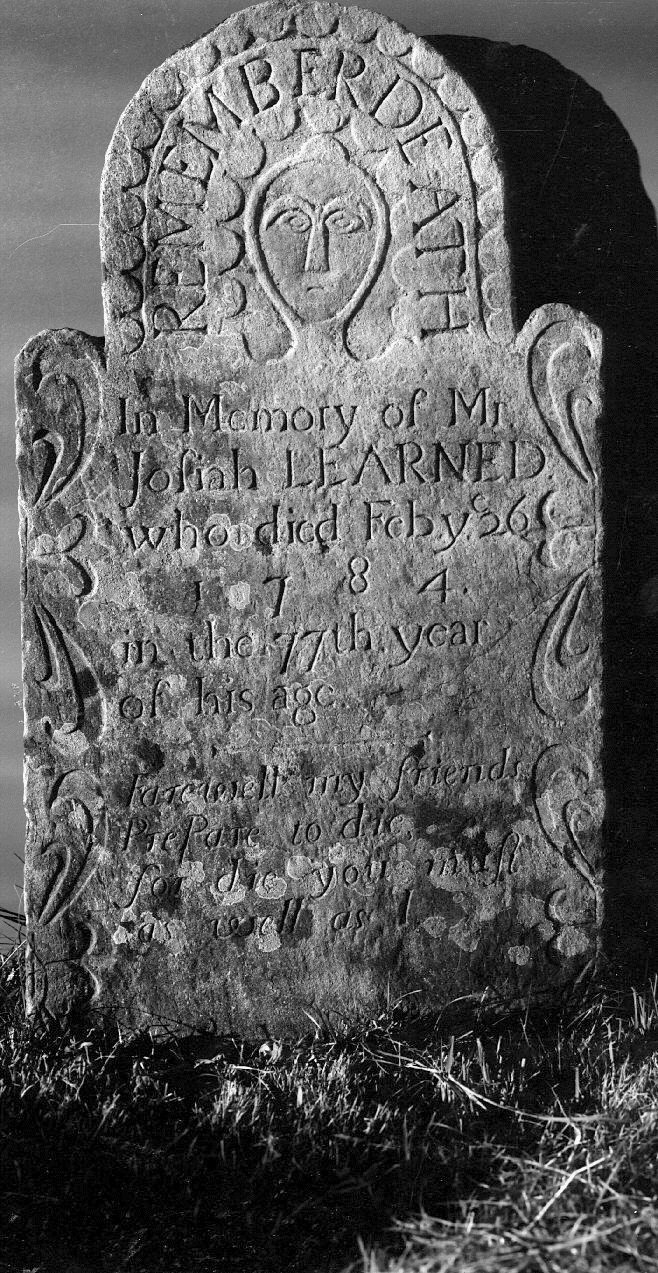 REMEMBER DEATH
In Memory of Mr.
Joſiah LEARNED.
who died Feby.ͤ 26
1 7 8 4.
in the 77th. year
of his age.
farewell my friends
PrePare to die,
for die you muſt
as well as I